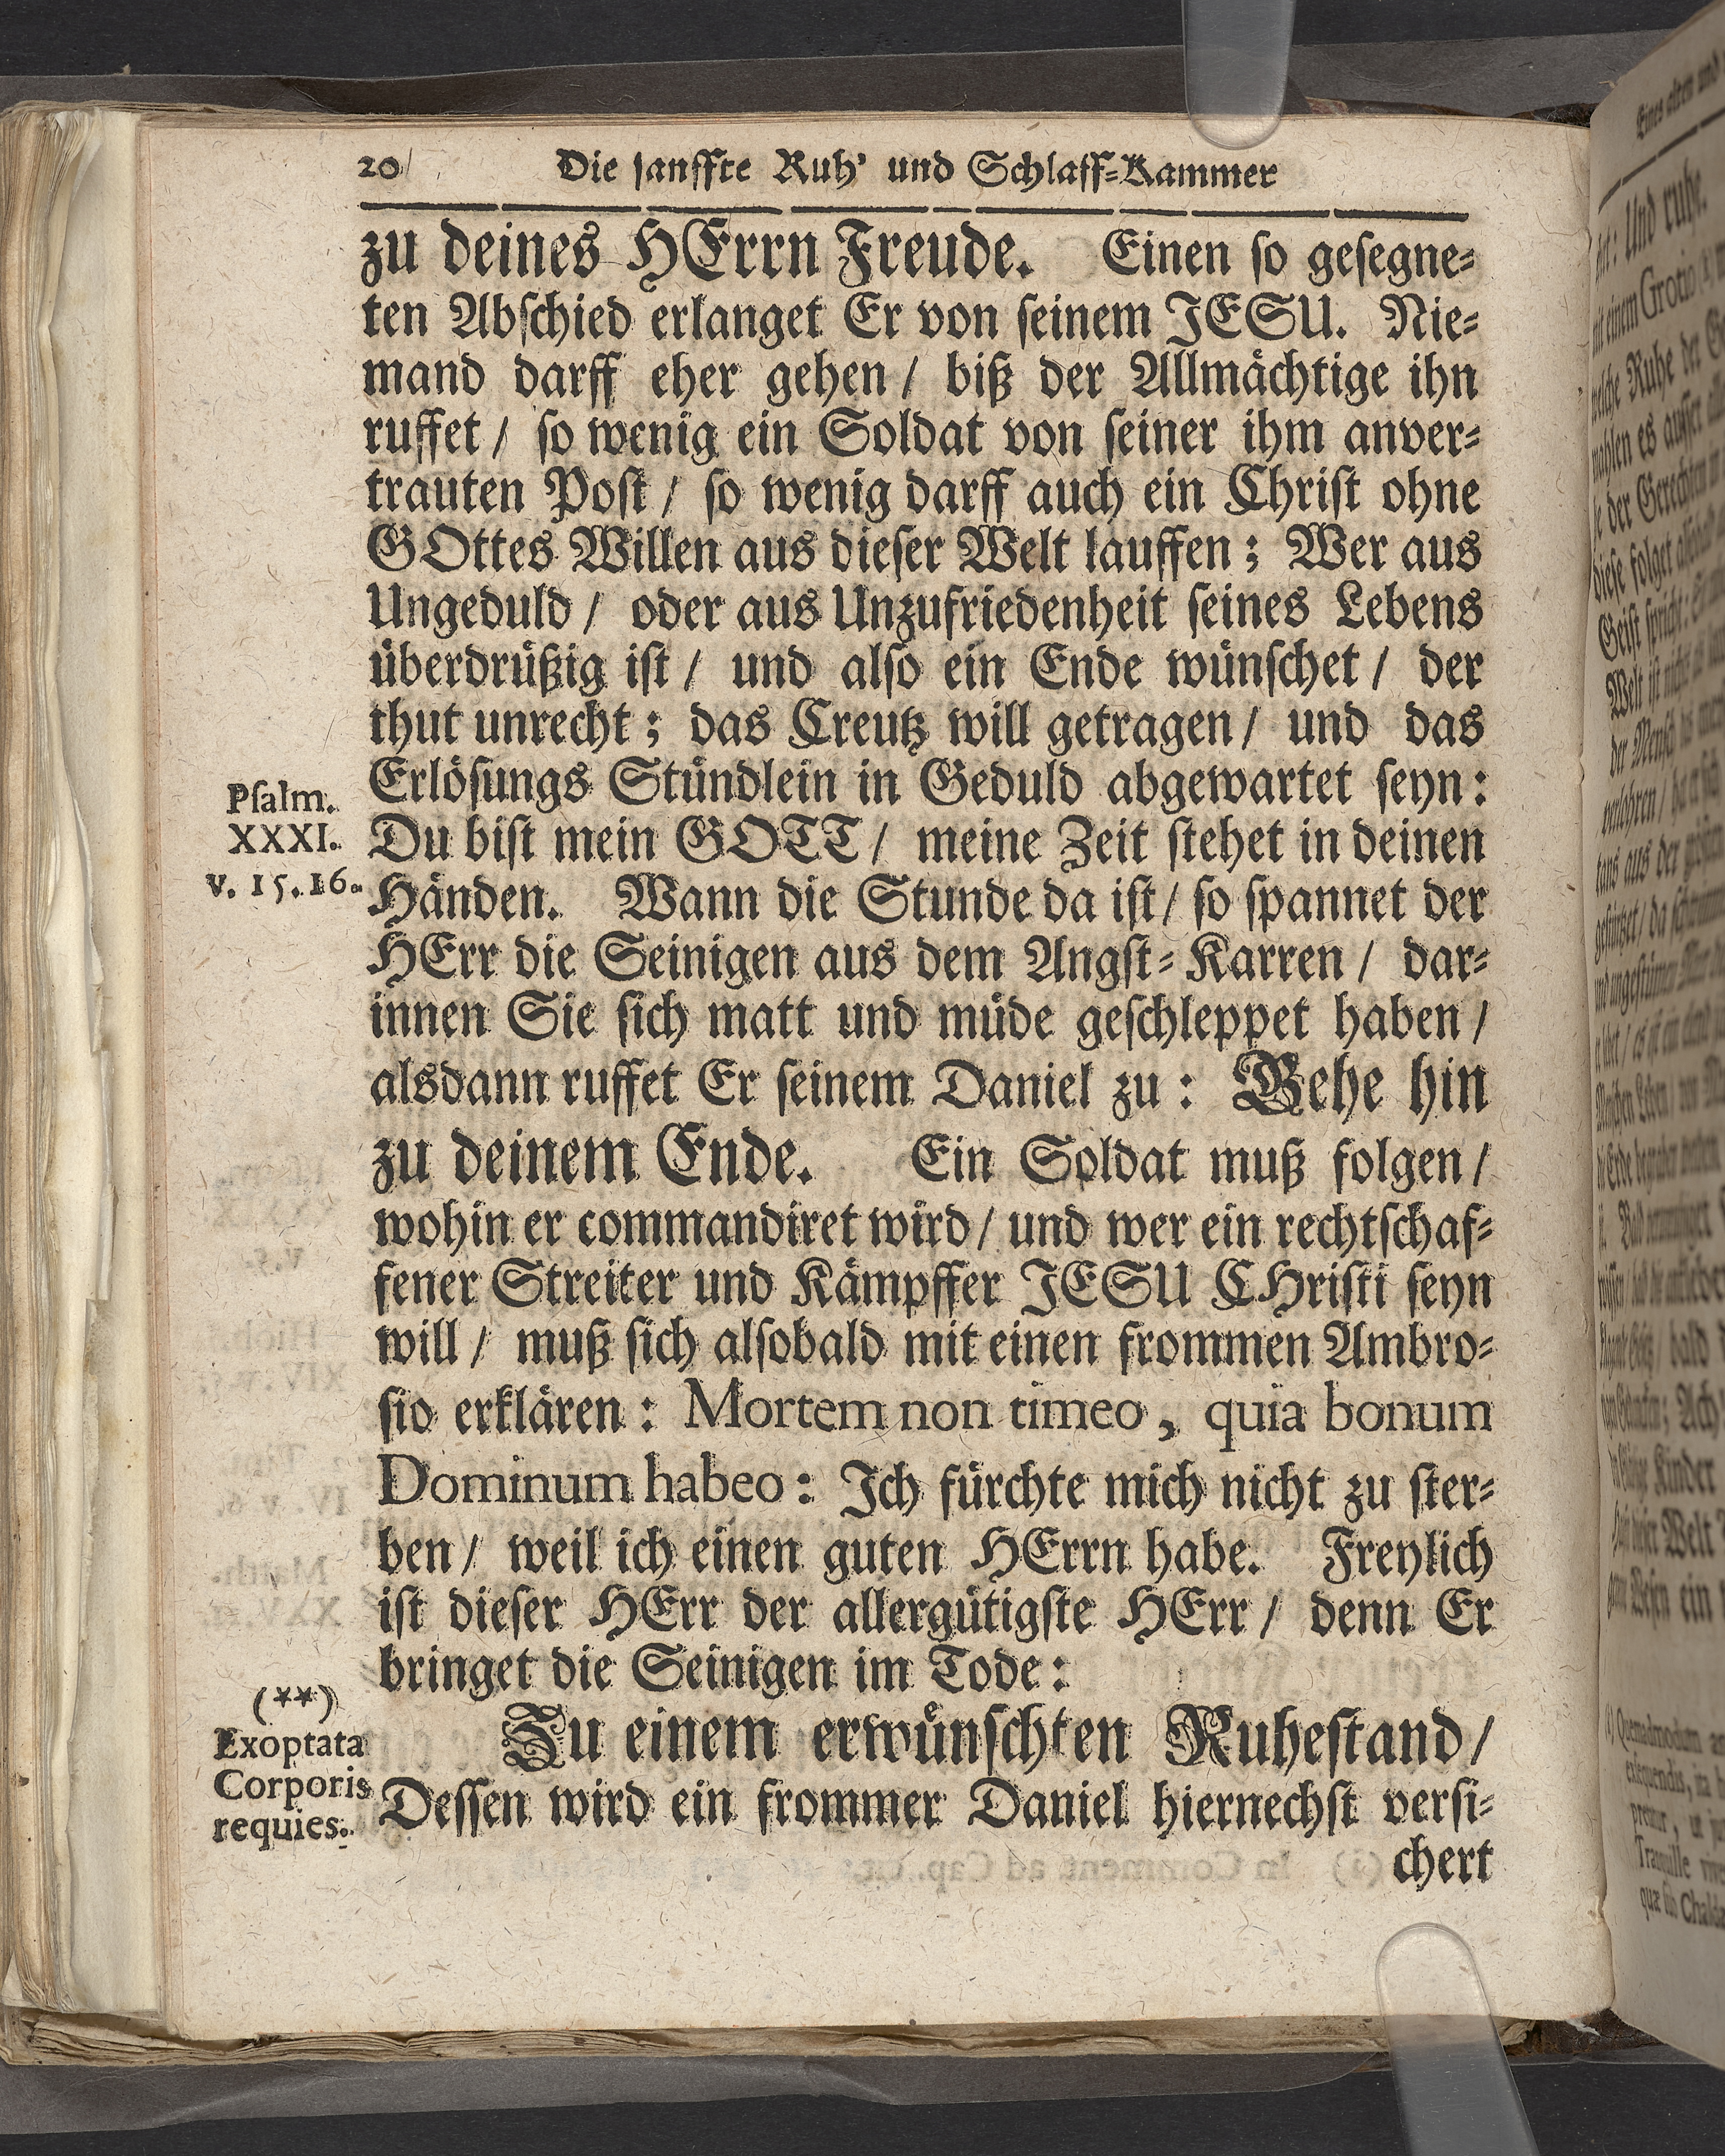 20 Die sanffte Ruh' und Schlaff-Kammer
zu deines HErrn Freude. Einen so gesegne-
ten Abschied erlanget Er von seinem JESU. Nie-
mand darff eher gehen / biß der Allmächtige ihn
ruffet / so wenig ein Soldat von seiner ihm anver-
trauten Post / so wenig darff auch ein Christ ohne
GOttes Willen aus dieser Welt lauffen; Wer aus
Ungeduld / oder aus Unzufriedenheit seines Lebens
überdrüßig ist / und also ein Ende wünschet / der
thut unrecht; das Creutz will getragen / und das
Erlösungs Stündlein in Geduld abgewartet seyn:
Psalm.
XXXI.
v. 15. 16.
Du bist mein GOTT / meine Zeit stehet in deinen
Händen. Wann die Stunde da ist / so spannet der
HErr die Seinigen aus dem Angst-Karren / dar-
innen Sie sich matt und müde geschleppet haben /
alsdann ruffet Er seinem Daniel zu: Gehe hin
zu deinem Ende. Ein Soldat muß folgen /
wohin er commandiret wird / und wer ein rechtschaf-
fener Streiter und Kämpffer JESU CHristi seyn
will / muß sich alsobald mit einen frommen Ambro-
sio erklären: Mortem non timeo, quia bonum
Dominum habeo: Ich fürchte mich nicht zu ster-
ben / weil ich einen guten HErrn habe. Freylich
ist dieser HErr der allergütigste HErr / denn Er
bringet die Seinigen im Tode:
(**)
Exoptata
Corporis
requies.
Zu einem erwünschten Ruhestand /
Dessen wird ein frommer Daniel hiernechst versi-
chert
Eines alten und
Und ruhe.
mit einem Grotio
welche Ruhe der
der Gerechten
diese folget
Geist spricht:
Welt ist nicht
der Mensch
Kinder
Welt
ein